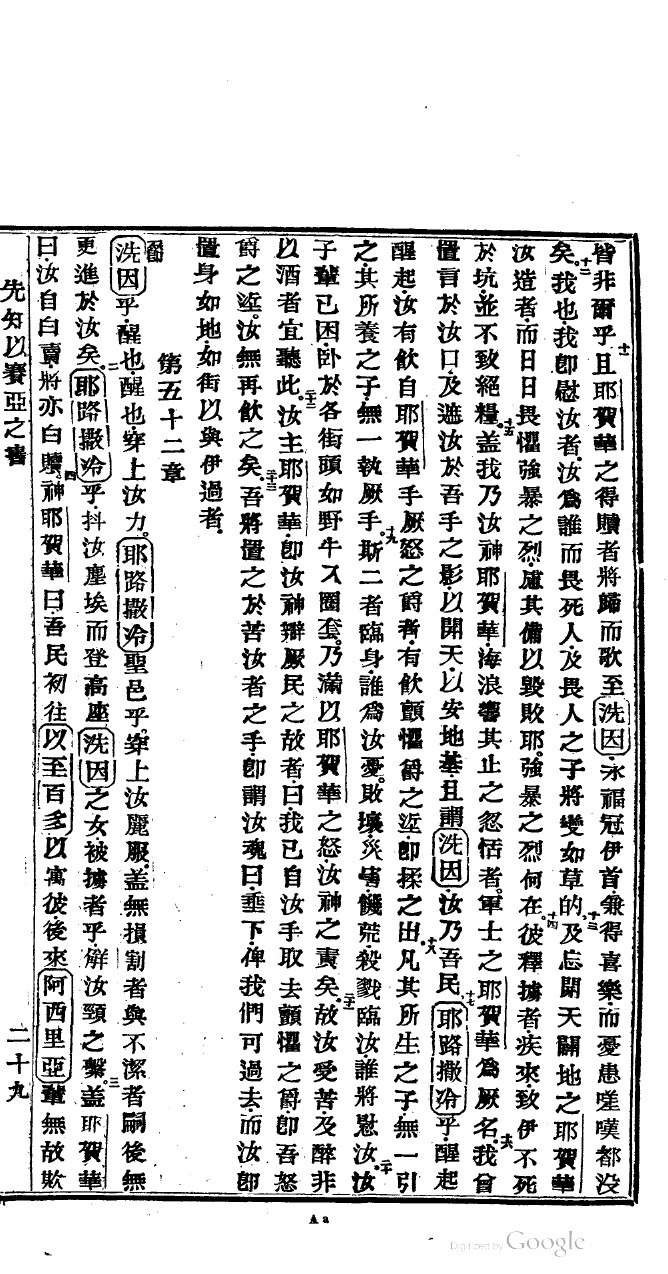 皆非爾乎十一且耶賀華之得贖者將歸而歌至洗因永福冠伊首兼得喜樂而憂患嗟嘆都沒
矣十二我也我即慰汝者汝為誰而畏死人及畏人之子將變如草的十三及忘開天闢地之耶賀華
汝造者而日日畏懼強暴之烈慮其備以毀敗耶強暴之烈何在十四彼釋擄者疾來致伊不死
於坑並不致絕糧十五蓋我乃汝神耶賀華海浪響其止之忽恬者軍士之耶賀華為厥名十六我曾
置言於汝口及遮汝於吾手之影以開天以安地基且謂洗因汝乃吾民十七耶路撒冷乎醒起
醒起汝有飲自耶賀華手厥怒之爵者有飲顫懼爵之滓即搽之出十八凡其所生之子無一引
之其所養之子無一執厥手十九斯二者臨身誰為汝憂敗壞災害饑荒殺戮臨汝誰將慰汝二十汝
子輩已困臥於各街頭如野牛入圈套乃滿以耶賀華之怒汝神之責矣二一故汝受苦及醉非
以酒者宜聽此二二汝主耶賀華即汝神辯厥民之故者曰我已自汝手取去顫懼之爵即吾怒
爵之滓汝無再飲之矣二三吾將置之於苦汝者之手即謂汝魂曰垂下俾我們可過去而汝即
置身如地如街以與伊過者
第五十二章
一節洗因乎醒也醒也穿上汝力耶路撒冷聖邑乎穿上汝麗服蓋無損割者與不潔者嗣後無
更進於汝矣二耶路撒冷乎抖汝塵埃而登高座洗因之女被擄者乎解汝頸之繫三蓋耶賀華
曰汝自白賣將亦白贖四神耶賀華曰吾民初往以至百多以寓彼後來阿西里亞輩無故欺
先知以賽亞之書
二十九
Aa
Digitized by Google